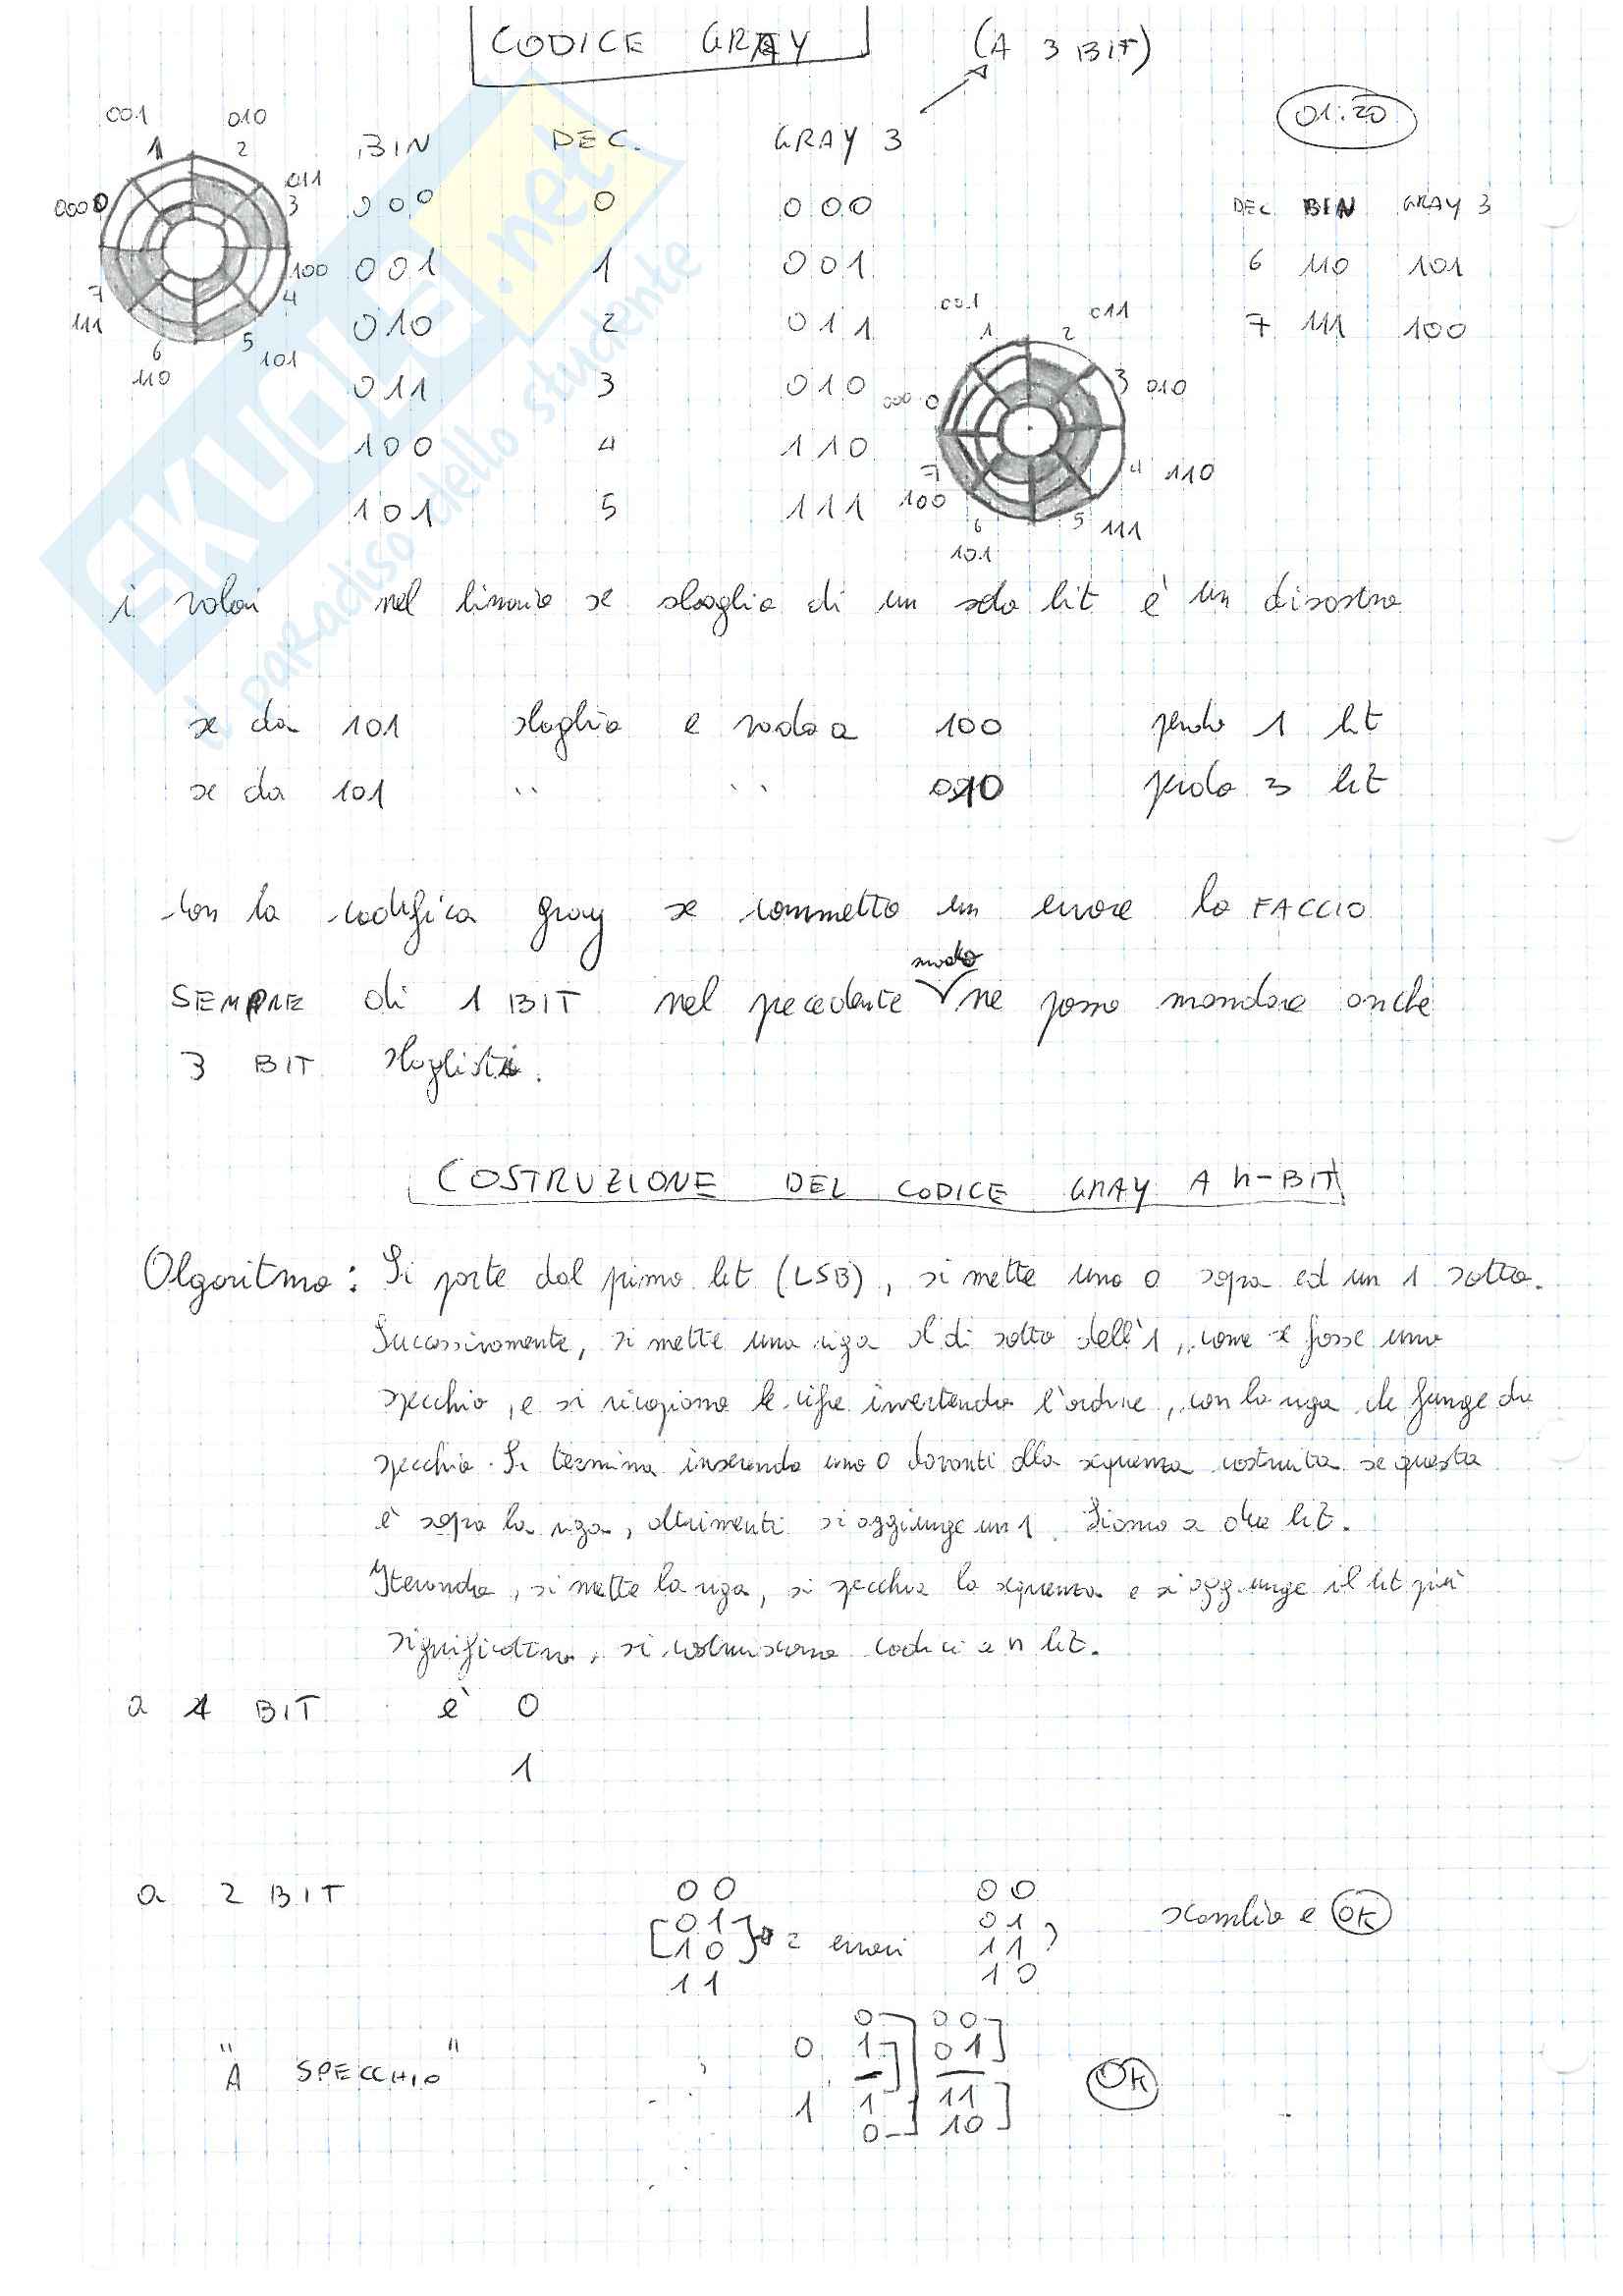 CODICE GRAY (A 3 BIT)
01:20
001 010
1 2
000 0
011
3
100
4
7
111
6
110
5
101
BIN DEC. GRAY 3
000 0 000
001 1 001
010 2 011
011 3 010
100 4 110
101 5 111
DEC BIN GRAY 3
6 110 101
7 111 100
001 011
1 2
000 0
3 010
4 110
7
100
6
101
5 111
i valori nel binario se sbaglio di un solo bit è un disastro
se da 101 sbaglio e vado a 100 perdo 1 bit
se da 101 " " 010 perdo 3 bit
con la codifica gray se commetto un errore lo FACCIO
SEMPRE di 1 BIT nel precedente modo ne posso mandare anche
3 BIT sbagliati.
COSTRUZIONE DEL CODICE GRAY A n-BIT
Algoritmo: Si parte dal primo bit (LSB), si mette uno 0 sopra ed un 1 sotto.
Successivamente, si mette una riga al di sotto dell'1, come se fosse uno
specchio, e si ricopiano le cifre invertendo l'ordine, con la riga che funge da
specchio. Si termina inserendo uno 0 davanti alla sequenza costruita se questa
è sopra la riga, altrimenti si aggiunge un 1. Siamo a due bit.
Iterando, si mette la riga, si specchia la sequenza e si aggiunge il bit più
significativo, si costruiscono codici a n bit.
a 1 BIT è 0
1
a 2 BIT
00 00
01 01
10 2 errori 11 scambio e OK
11 10
"A SPECCHIO"
0 00
0 1 01
1 1 11
0 10
OK
EKUOLE.net
il paradiso dello studente